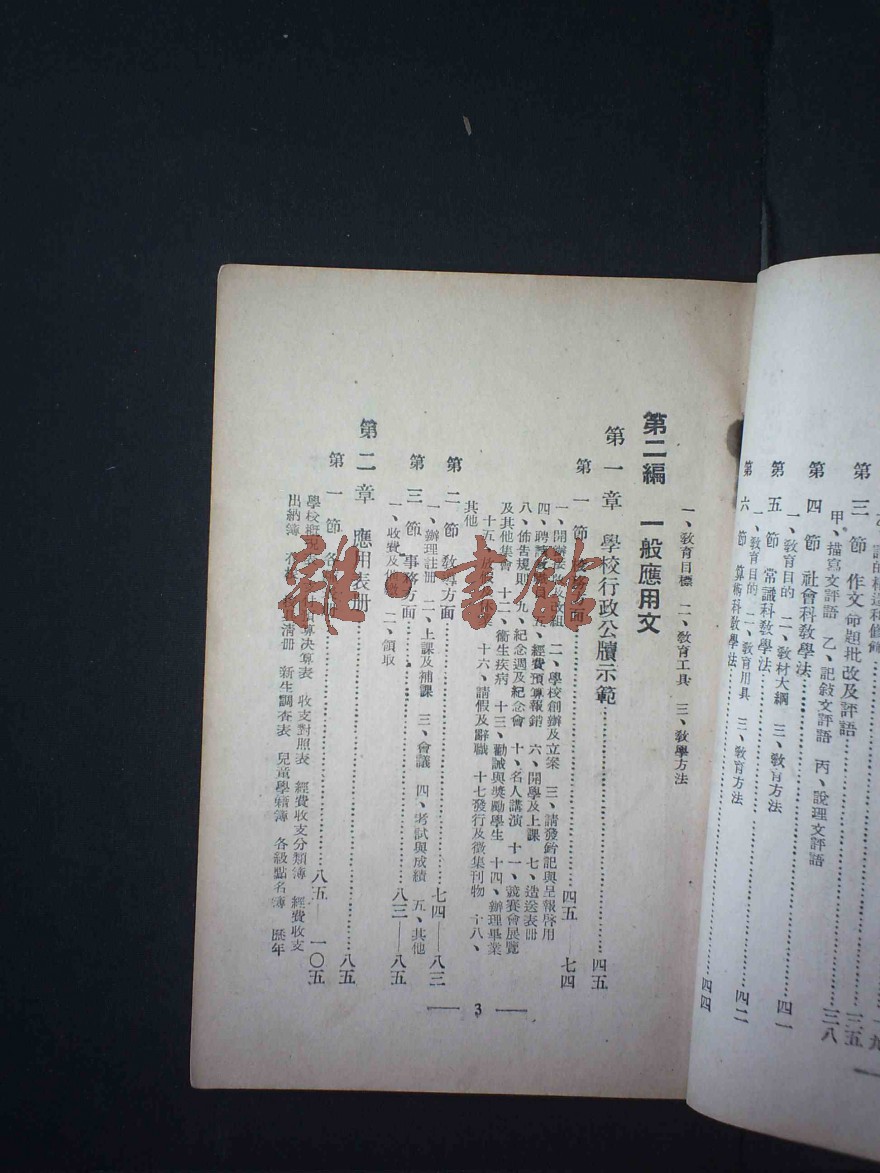 的構造和修飾
第三節 作文命題批改及評語……三五
甲、描寫文評語 乙、記敍文評語 丙、說理文評語
第四節 社會科教學法……三八
一、教育目的 二、教材大綱 三、教育方法
第五節 常識科教學法……四一
一、教育目的 二、教育用具 三、教育方法……四二
第六節 算術科教學法……四四
一、教育目標 二、教育工具 三、教學方法
第二編 一般應用文
第一章 學校行政公牘示範……四五
第一節 校務方面……四五—七四
一、開辦 改組 二、學校創辦及立案 三、請發鈐記與呈報啓用
四、聘 五、經費預算報銷 六、開學及上課 七、造送表冊
八、佈告規則 九、紀念週及紀念會 十、名人講演 十一、競賽會展覽
及其他集會 十二、衞生疾病 十三、勸誡與獎勵學生 十四、辦理畢業
十五、放假 十六、請假及辭職 十七發行及徵集刊物 十八、
其他
第二節 教導方面……七四—八三
一、辦理註冊 二、上課及補課 三、會議 四、考試與成績 五、其他
第三節 事務方面……八三—八五
一、收費及 二、領取
第二章 應用表册……八五
第一節 各……八五—一〇五
學校概 算決算表 收支對照表 經費收支分類簿 經費收支
出納簿 清册 新生調查表 兒童學籍簿 各級點名簿 歷年
3
雜·書館